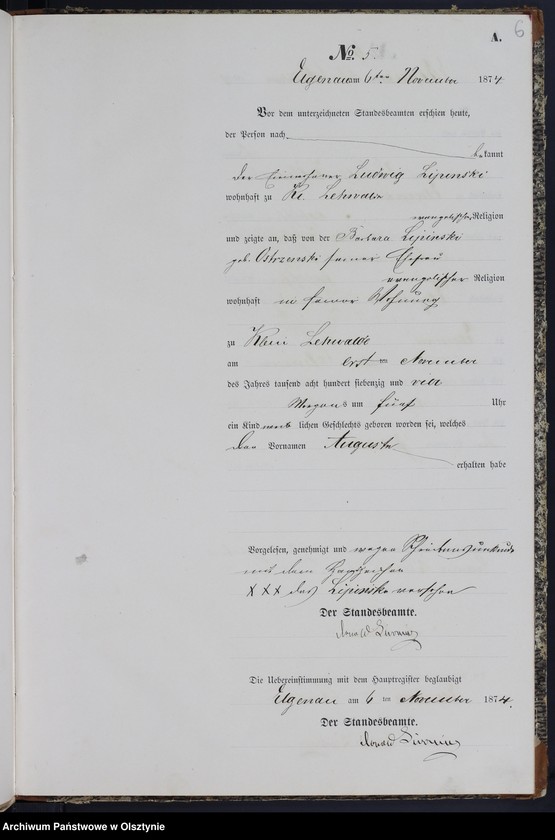 6
A.
№ 5.
Elgenau am 6ten November 1874
Vor dem unterzeichneten Standesbeamten erschien heute,
der Person nach
bekannt
der Einwohner Ludwig Lipinski
wohnhaft zu Kl. Lehwalde
evangelischer Religion
und zeigte an, daß von der Barbara Lipinski
geb. Ostrzenski seiner Ehefrau
evangelischer Religion
wohnhaft in seiner Wohnung
zu Klein Lehwalde
am ersten November
des Jahres tausend acht hundert siebenzig und vier
Morgens um fünf Uhr
ein Kind weiblichen Geschlechts geboren worden sei, welches
den Vornamen Auguste
erhalten habe
Vorgelesen, genehmigt und wegen Schreibensunkunde
mit dem Handzeichen
XXX des Lipinski versehen
Der Standesbeamte.
Die Uebereinstimmung mit dem Hauptregister beglaubigt
Elgenau am 6ten November 1874.
Der Standesbeamte.
Archiwum Państwowe w Olsztynie